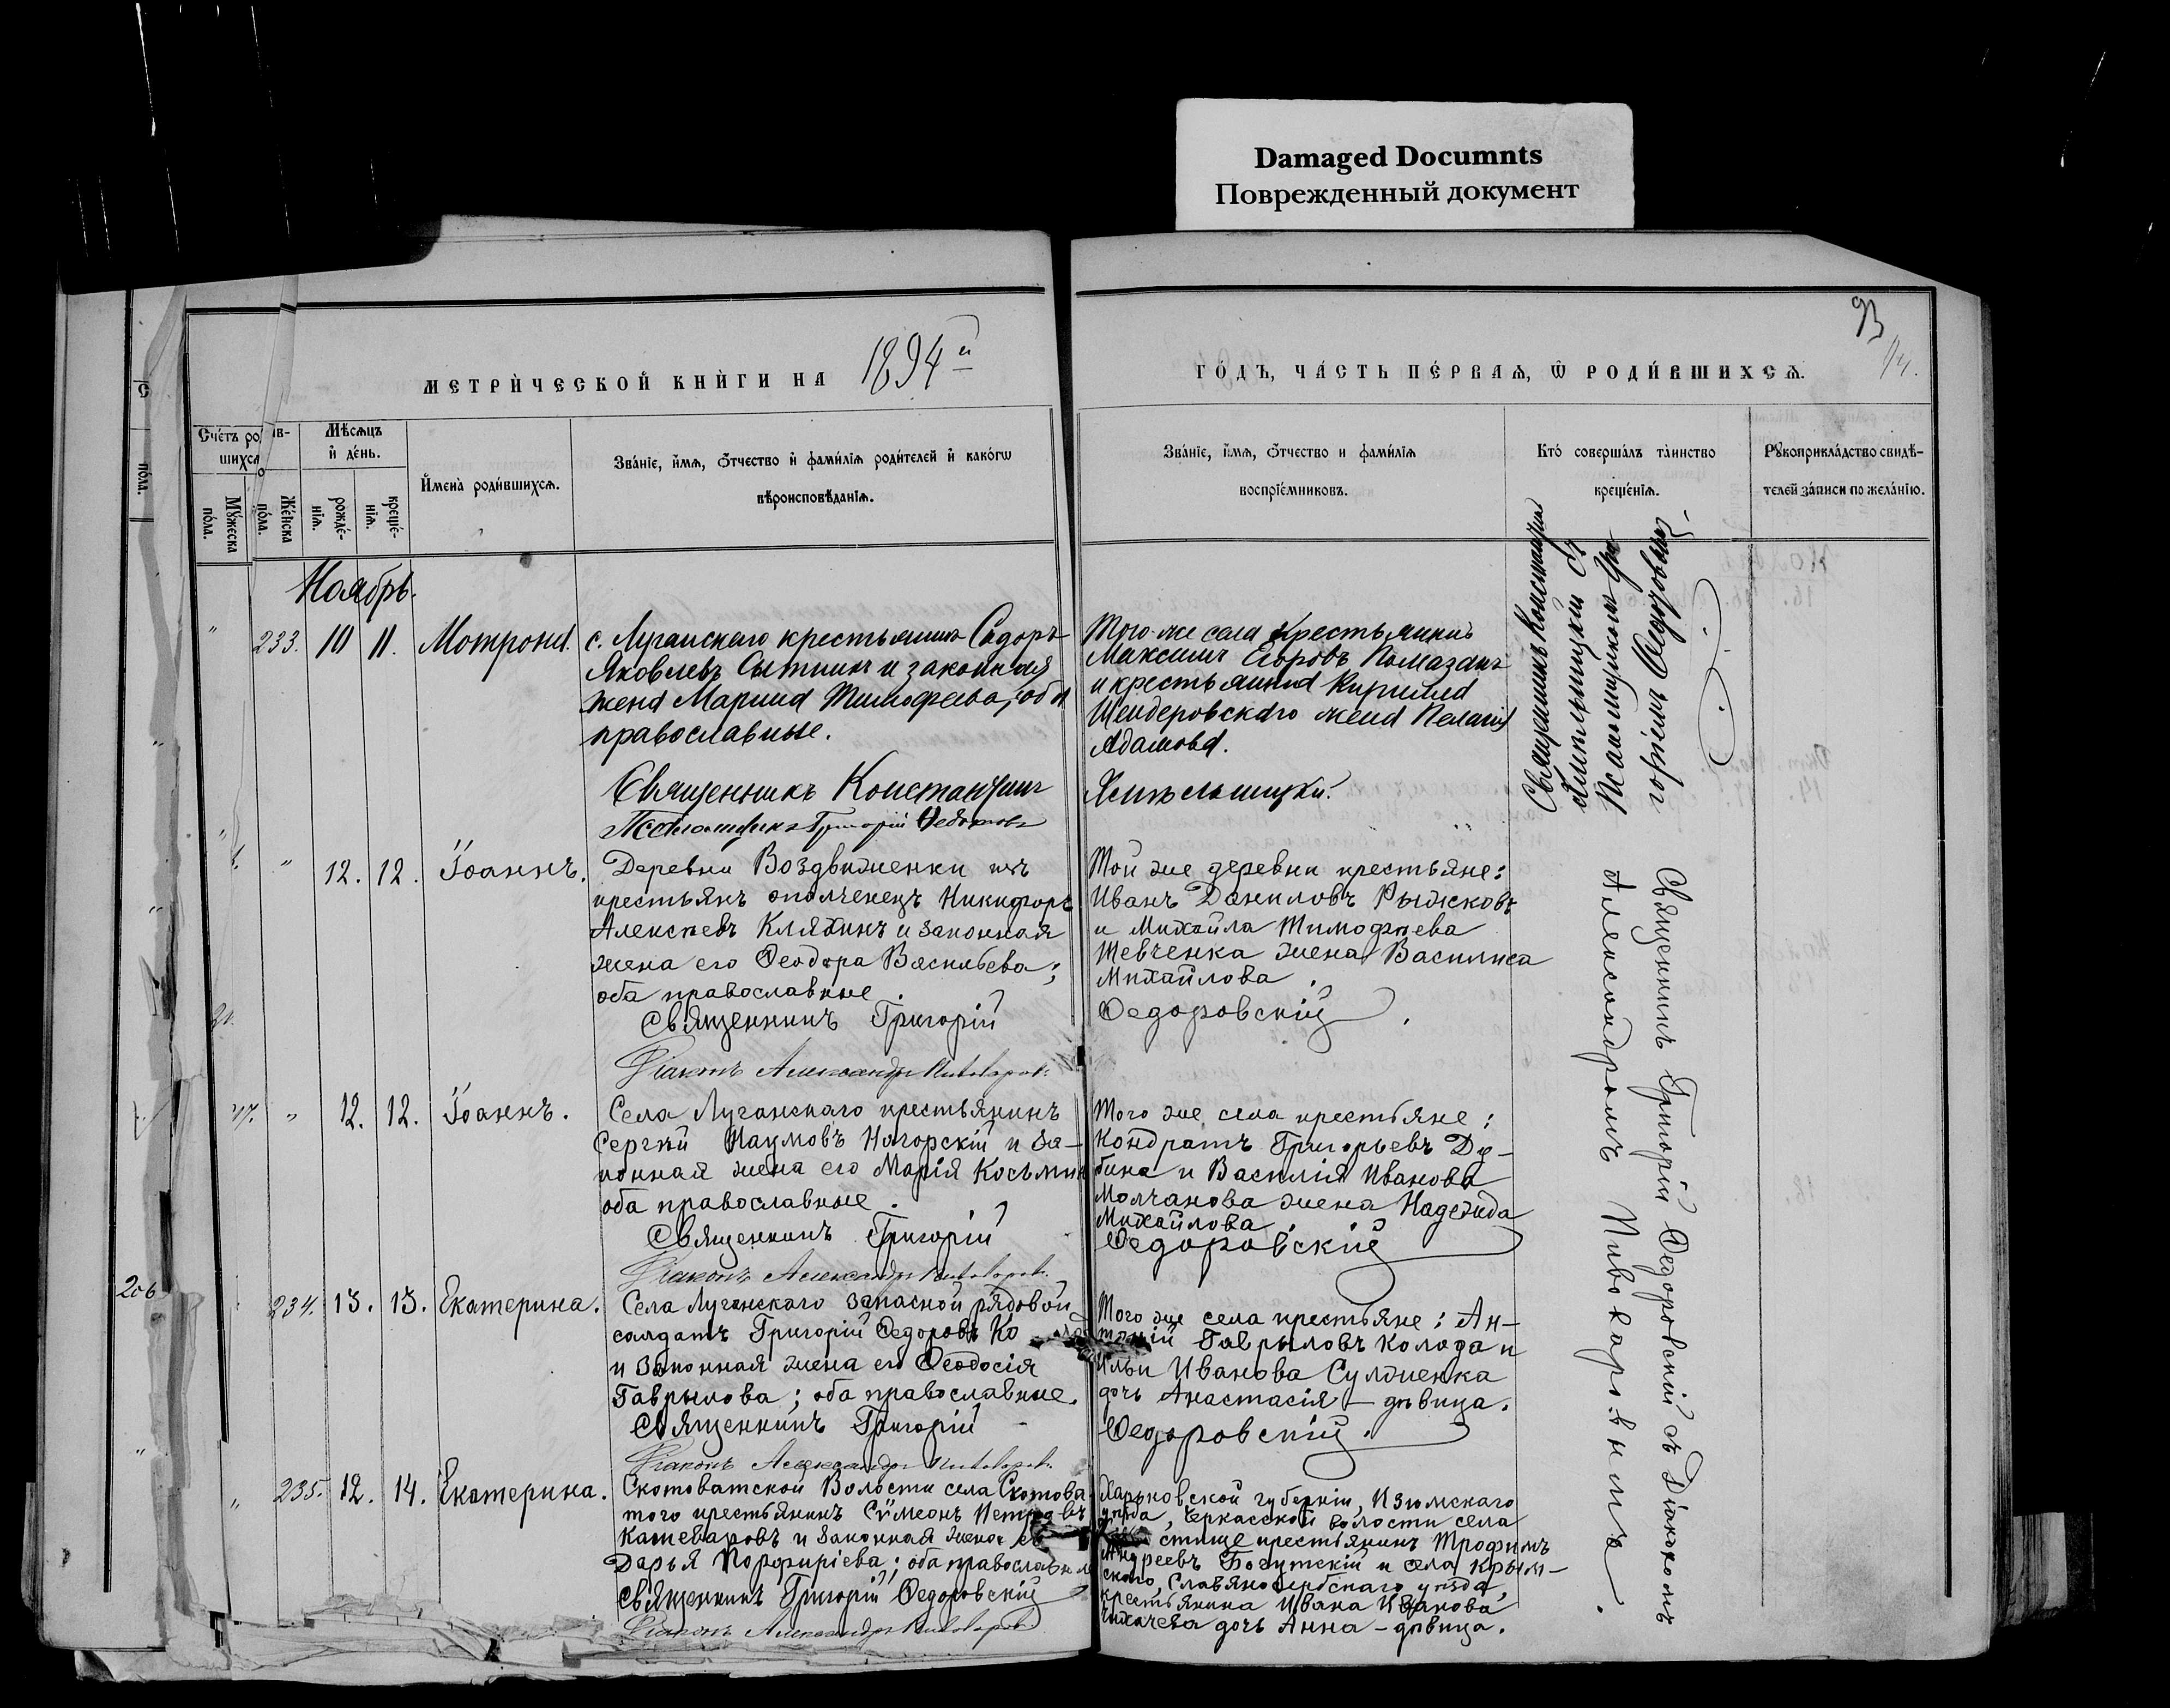 Damaged Documnts
Поврежденный документ
93
МЕТРИ́ЧЕСКОЙ КНИ́ГИ НА 1894й
ГО́ДЪ, ЧА́СТЬ ПЕ́РВАЯ, Ѿ РОДИ́ВШИХСѦ.
Мѣсѧцъ
и҆ де́нь.
И҆мена̀ роди́вшихсѧ.
Зва́нїе, и҆́мѧ, ѻ҆́тчество и҆ фами́лїѧ роди́телей и҆ како́гѡ
вѣроисповѣ́данїѧ.
Зва́нїе, и҆́мѧ, ѻ҆́тчество и фами́лїѧ
воспрїе́мниковъ.
Кто́ соверша́лъ та́инство
креще́нїѧ.
Рꙋкоприкла́дство свидѣ́-
телей за́писи по жела́нїю.
Мꙋ́жеска
по́ла.
Же́нска
по́ла.
рожде́-
нїѧ.
креще́-
нїѧ.
Ноябрь.
233. 10 11. Мотрона.
с. Луганскаго крестьянинъ Сидоръ
Яковлевъ Сытникъ и законная
жена Марина Тимофеева, оба
православные.
Священникъ Константинъ
Псаломщикъ Григорій
Того же села крестьянинъ
Максимъ Егоровъ Помазанъ
и крестьянина Кирилла
Шендеровскаго жена Пелагія
Адамова.
Священникъ Константинъ
" 12. 12. Іоаннъ.
Деревни Воздвиженки изъ
крестьянъ ополченецъ Никифоръ
Алексѣевъ Кляхинъ и законная
жена его Феодора Васильева;
оба православные.
Священникъ Григорій
Діаконъ Александръ Пивоваровъ
Той же деревни крестьяне:
Иванъ Даниловъ Рыжковъ
и Михаила Тимофѣева
Шевченка жена Василиса
Михайлова.
Федоровскій.
Священникъ Григорій Федоровскій съ Діакономъ
Александромъ Пивоваровымъ.
" 12. 12. Іоаннъ.
Села Луганскаго крестьянинъ
Сергѣй Наумовъ Нагорскій и за-
конная жена его Марія Косьмин
оба православные.
Священникъ Григорій
Діаконъ Александръ Пивоваровъ
Того же села крестьяне:
Кондратъ Григорьевъ Ду-
бина и Василія Иванова
Молчанова жена Надежда
Михайлова.
Федоровскій
206
234. 13. 13. Екатерина.
Села Луганскаго запасной рядовой
солдатъ Григорій Федоровъ Ко
и законная жена его Феодосія
Гаврылова; оба православные.
Священникъ Григорій
Діаконъ Александръ Пивоваровъ
Того же села крестьяне: Ан-
тоній Гаврыловъ Колода и
Ильи Иванова Сулженка
дочь Анастасія – дѣвица.
Федоровскій.
" 235. 12. 14. Екатерина.
Скотоватской Волости села Скотова-
того крестьянинъ Сѵмеонъ Петровъ
Кашеваровъ и законная жена ег
Дарья Порфиріева; оба православны
Священникъ Григорій Федоровскій
Діаконъ Александръ Пивоваровъ
Харьковской губерніи, Изюмскаго
уѣзда, Черкасской волости села
стище крестьянинъ Трофимъ
Андреевъ Богутскій и села Крым-
скаго, Славяносербскаго уѣзда,
крестьянина Ивана Иванова
Чихачева дочь Анна – дѣвица.